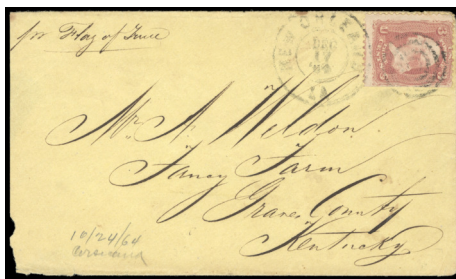 pr Flag of Truce
NEW ORLEANS
DEC
17
64
LA
Mr. A. Weldon.
Fancy Farm
Graves County
Kentucky
10/24/64